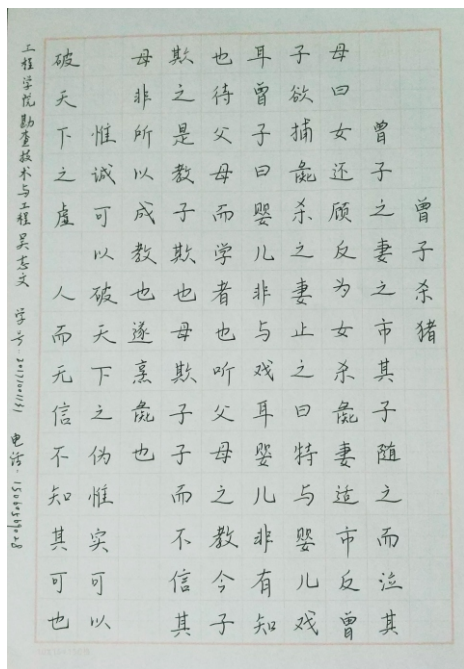 曾子杀猪
曾子之妻之市其子随之而泣其
母曰女还顾反为女杀彘妻适市反曾
子欲捕彘杀之妻止之曰特与婴儿戏
耳曾子曰婴儿非与戏耳婴儿非有知
也待父母而学者也听父母之教今子
欺之是教子欺也母欺子子而不信其
母非所以成教也遂烹彘也
惟诚可以破天下之伪惟实可以
破天下之虚 人而无信不知其可也
工程学院 勘查技术与工程 吴志文 学号 电话: